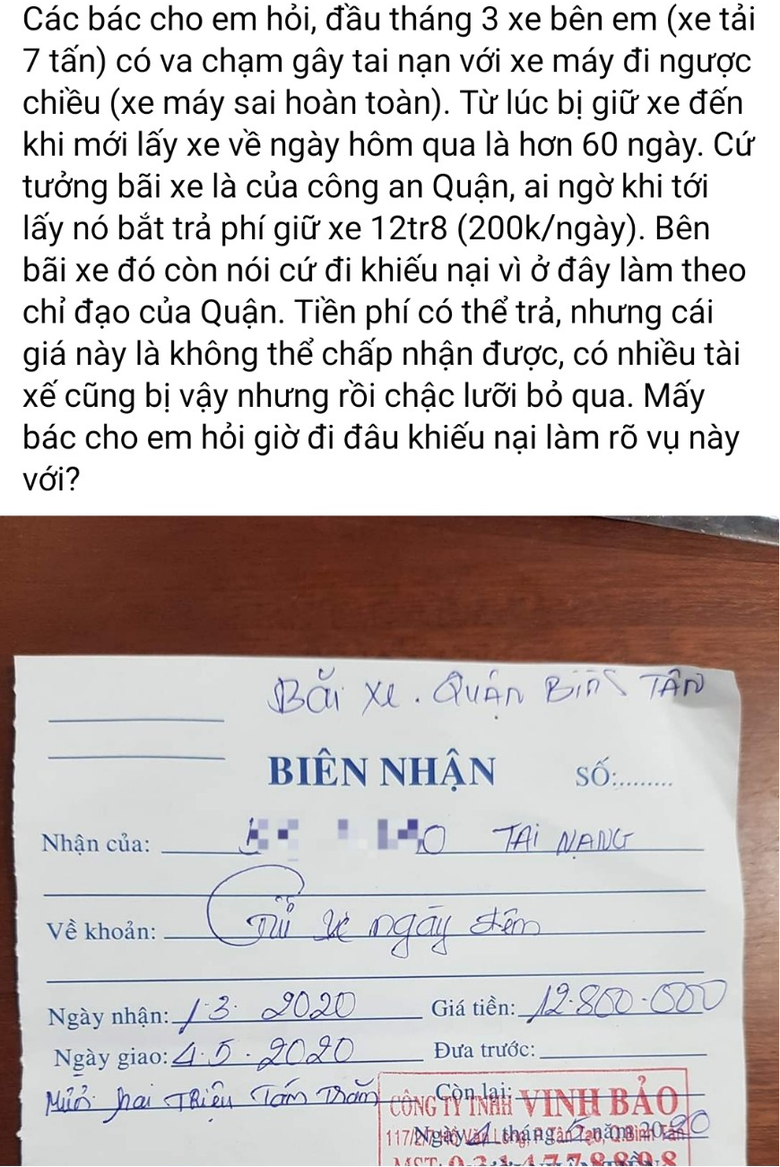 Các bác cho em hỏi, đầu tháng 3 xe bên em (xe tải
7 tấn) có va chạm gây tai nạn với xe máy đi ngược
chiều (xe máy sai hoàn toàn). Từ lúc bị giữ xe đến
khi mới lấy xe về ngày hôm qua là hơn 60 ngày. Cứ
tưởng bãi xe là của công an Quận, ai ngờ khi tới
lấy nó bắt trả phí giữ xe 12tr8 (200k/ngày). Bên
bãi xe đó còn nói cứ đi khiếu nại vì ở đây làm theo
chỉ đạo của Quận. Tiền phí có thể trả, nhưng cái
giá này là không thể chấp nhận được, có nhiều tài
xế cũng bị vậy nhưng rồi chậc lưỡi bỏ qua. Mấy
bác cho em hỏi giờ đi đâu khiếu nại làm rõ vụ này
với?
Bãi xe. QUẬN BÌNH TÂN
BIÊN NHẬN SỐ:........
Nhận của: TAi NẠNG
Về khoản: Giữ xe ngày đêm
Ngày nhận: 1·3· 2020 Giá tiền: 12·800·000
Ngày giao: 4·5·2020 Đưa trước:
Mười hai Triệu Tám Trăm Còn lại:
CÔNG TY TNHH VINH BẢO
Ngày 4 tháng 5 năm 2020